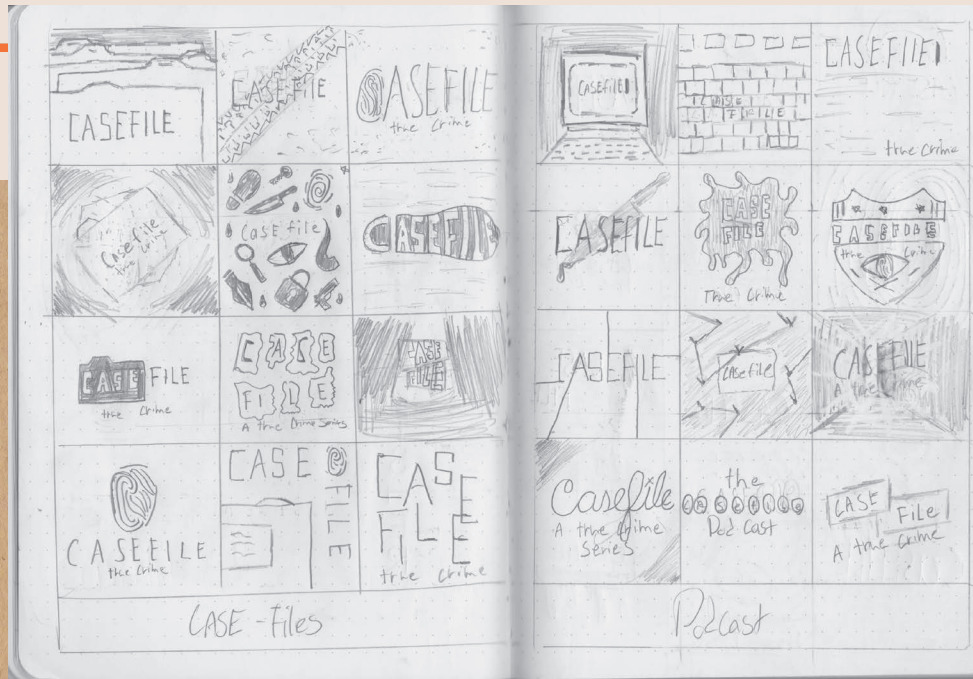 CASEFILE
CASEFILE
CASEFILE
true Crime
Casefile
true Crime
Case file
CASEFILE
CASE FILE
true Crime
CASE
FILE
A true Crime Series
CASE
FILE
CASEFILE
true Crime
CASE
FILE
CASE
FILE
true Crime
CASE-Files
CASEFILE
CASE
FILE
CASEFILE
true Crime
CASEFILE
CASE
FILE
True Crime
CASEFILE
true Crime
CASEFILE
Casefile
CASEFILE
A true Crime
Casefile
A true Crime
Series
the
CASEFILE
Podcast
CASE
FILE
A true Crime
Podcast